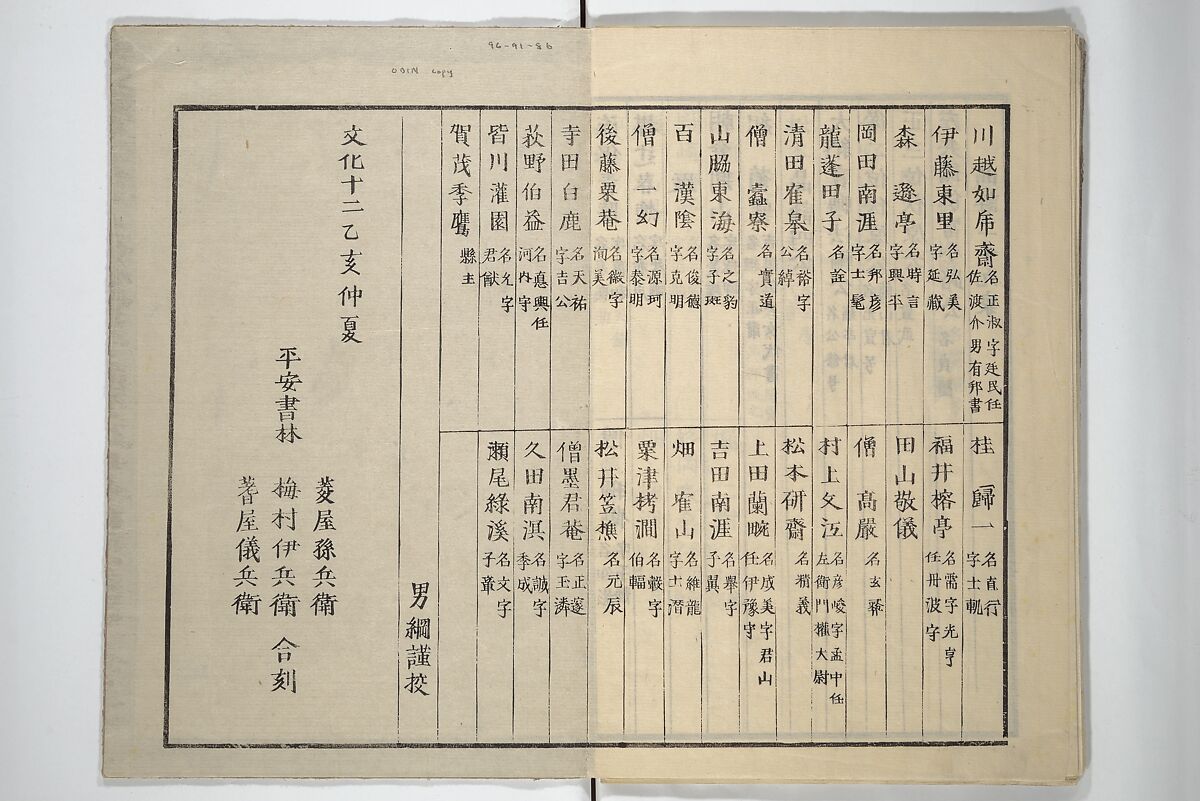 96-91-86
ODIN copy
川越如席齋 名正淑字廷民任佐渡介男有邦書
伊藤東里 名弘美字延蔵
森 遜亭 名時言字興平
岡田南涯 名邦彦字士髦
龍蓬田子 名詮
清田寉皋 名裕字公綽
僧 蠧寮 名實道
山脇東海 名之豹字子班
百 漢陰 名俊德字克明
僧一幻 名源珂字泰明
後藤栗菴 名徽字洵美
寺田白鹿 名天祐字吉公
荻野伯益 名惪輿任河内守
皆川灌園 名允字君猷
賀茂季鷹 縣主
桂 歸一 名直行字士軌
福井榕亭 名需字光亨任丹波守
田山敬儀
僧 高嚴 名玄
村上文江 名彦峻字孟中任左衛門權大尉
松本研齋 名積義
上田蘭畹 名成美字君山任伊豫守
吉田南涯 名舉字子翼
畑 寉山 名維龍字士潛
粟津栲澗 名毅字伯輻
松井笠樵 名元辰
僧墨君菴 名正邃字玉潾
久田南溟 名誠字季成
瀬尾綠溪 名文字子章
男綱謹挍
文化十二乙亥仲夏
平安書林
菱屋孫兵衛
梅村伊兵衛 合刻
蓍屋儀兵衛